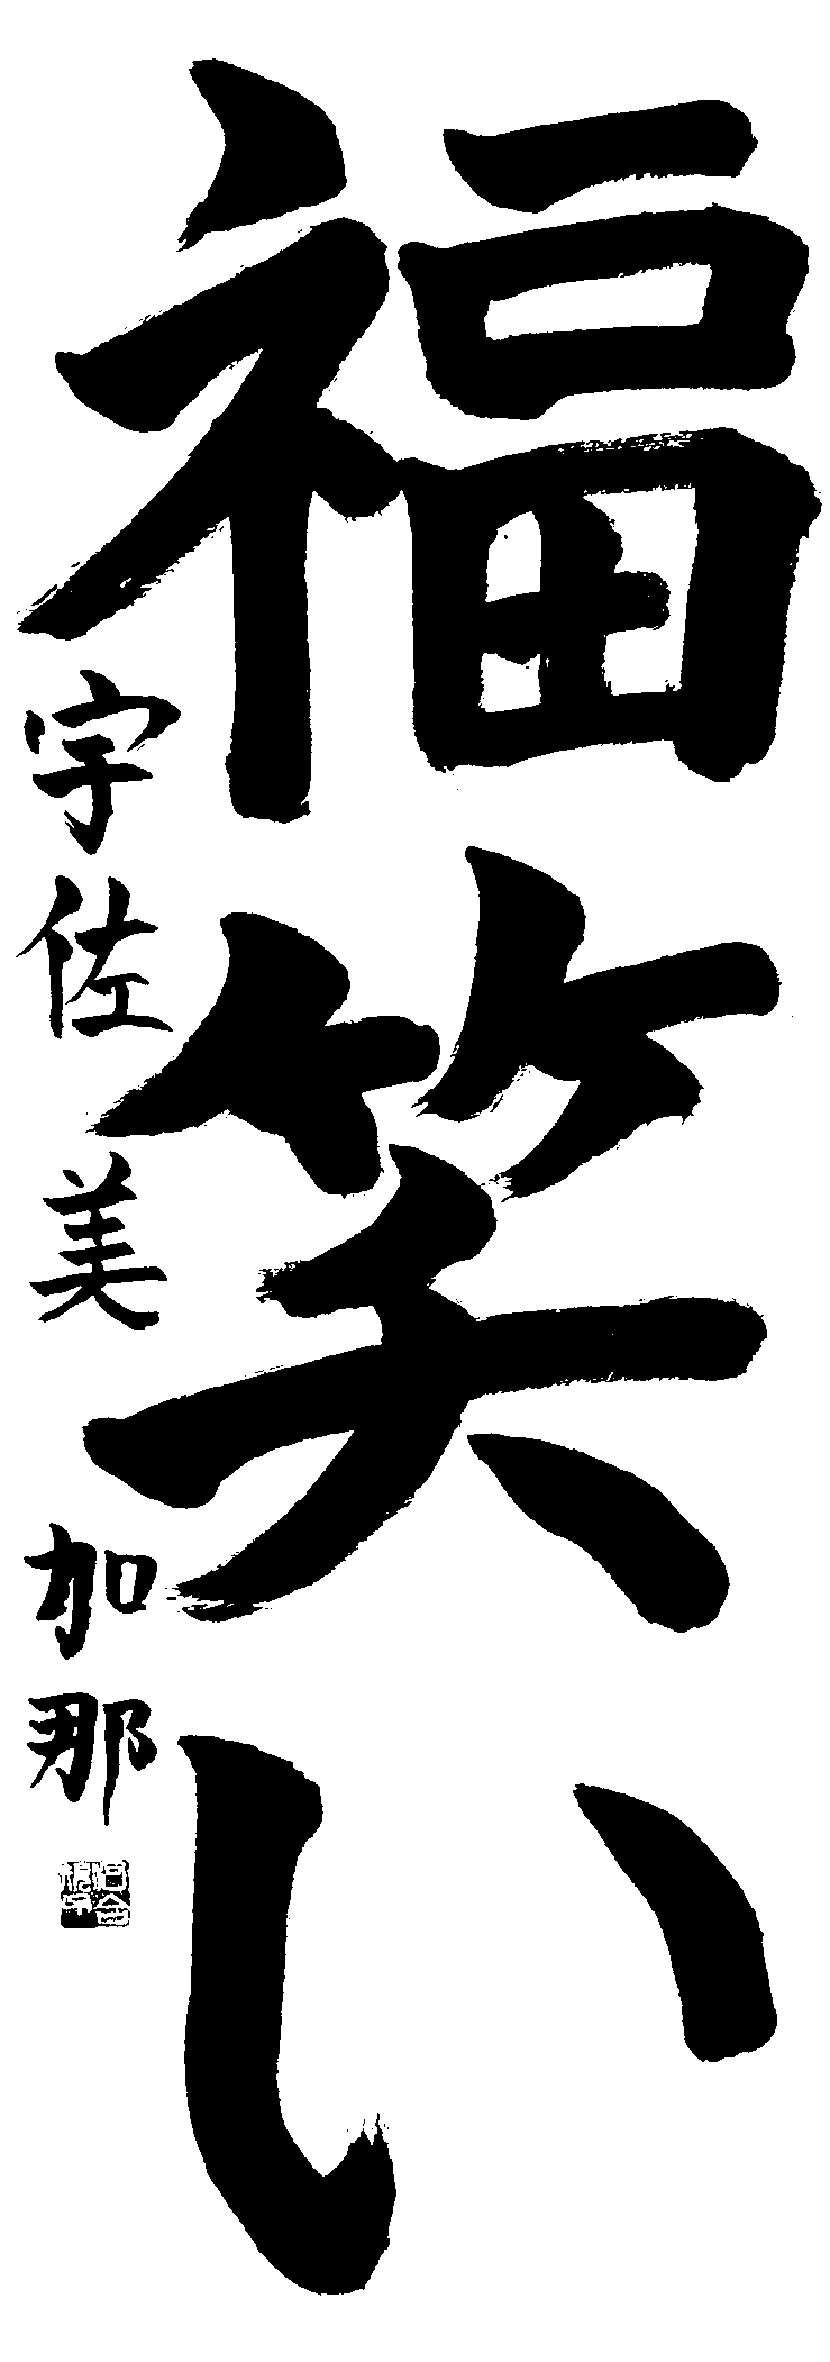 福笑い
宇佐美加那